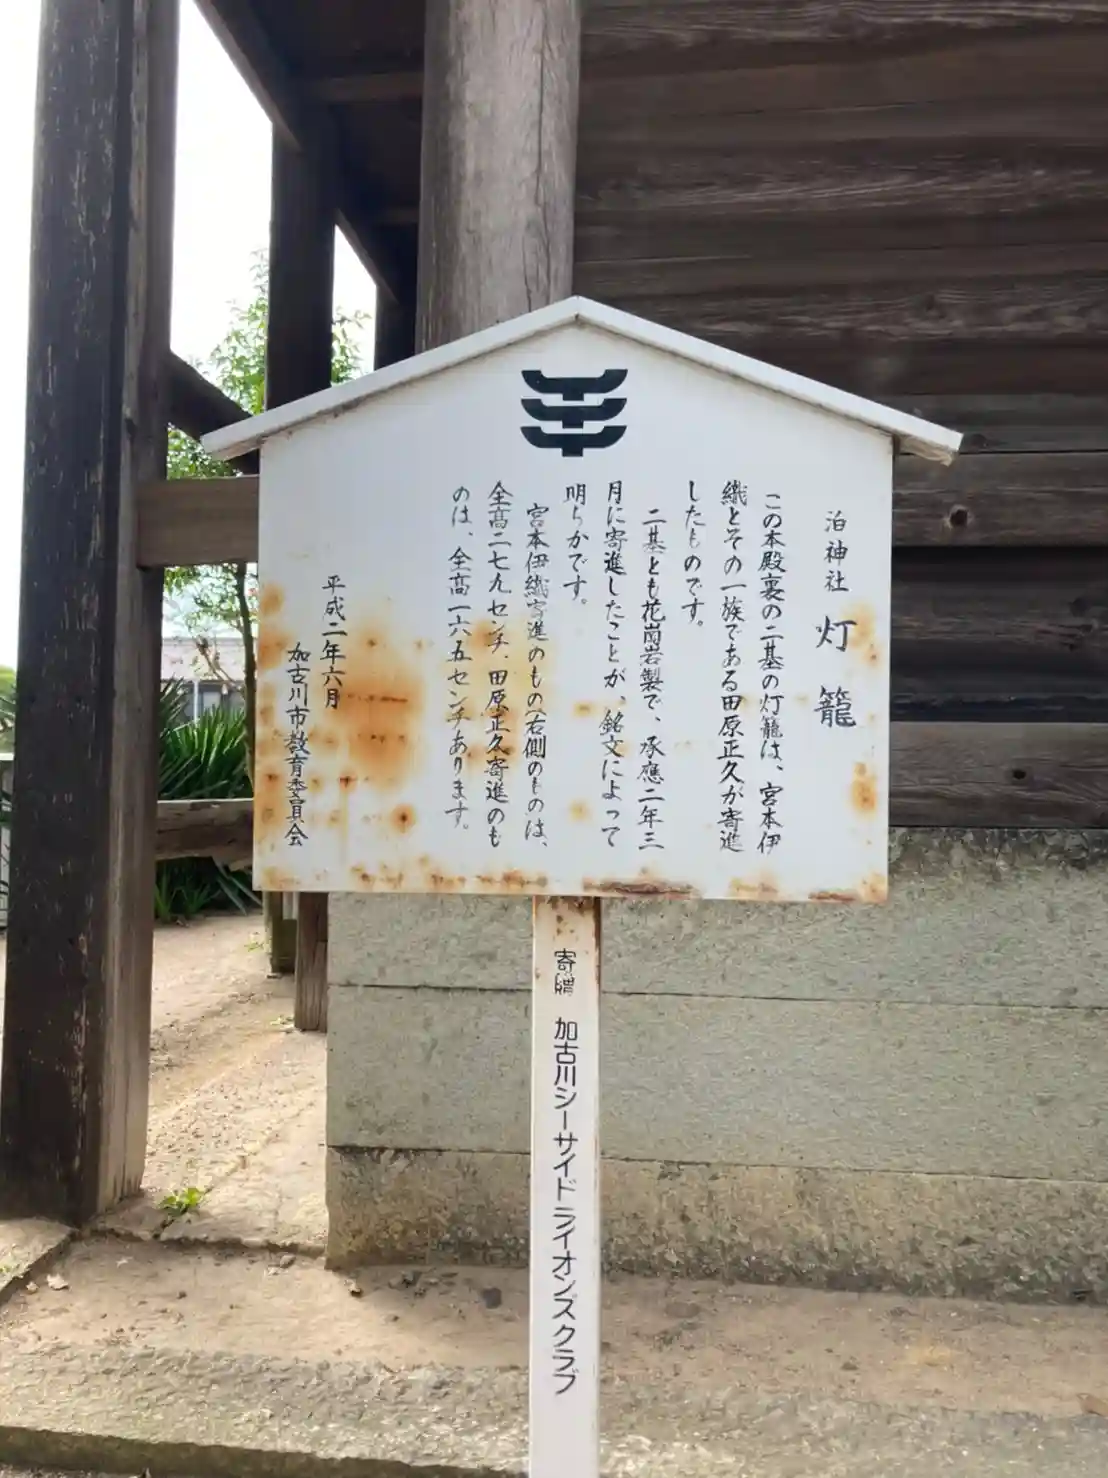 泊神社 灯籠
この本殿裏の二基の灯籠は、宮本伊
織とその一族である田原正久が寄進
したものです。
二基とも花崗岩製で、承應二年三
月に寄進したことが、銘文によって
明らかです。
宮本伊織寄進のもの(右側のものは、
全高二七九センチ、田原正久寄進のも
のは、全高一六五センチあります。
平成二年六月
加古川市教育委員会
寄贈 加古川シーサイドライオンズクラブ